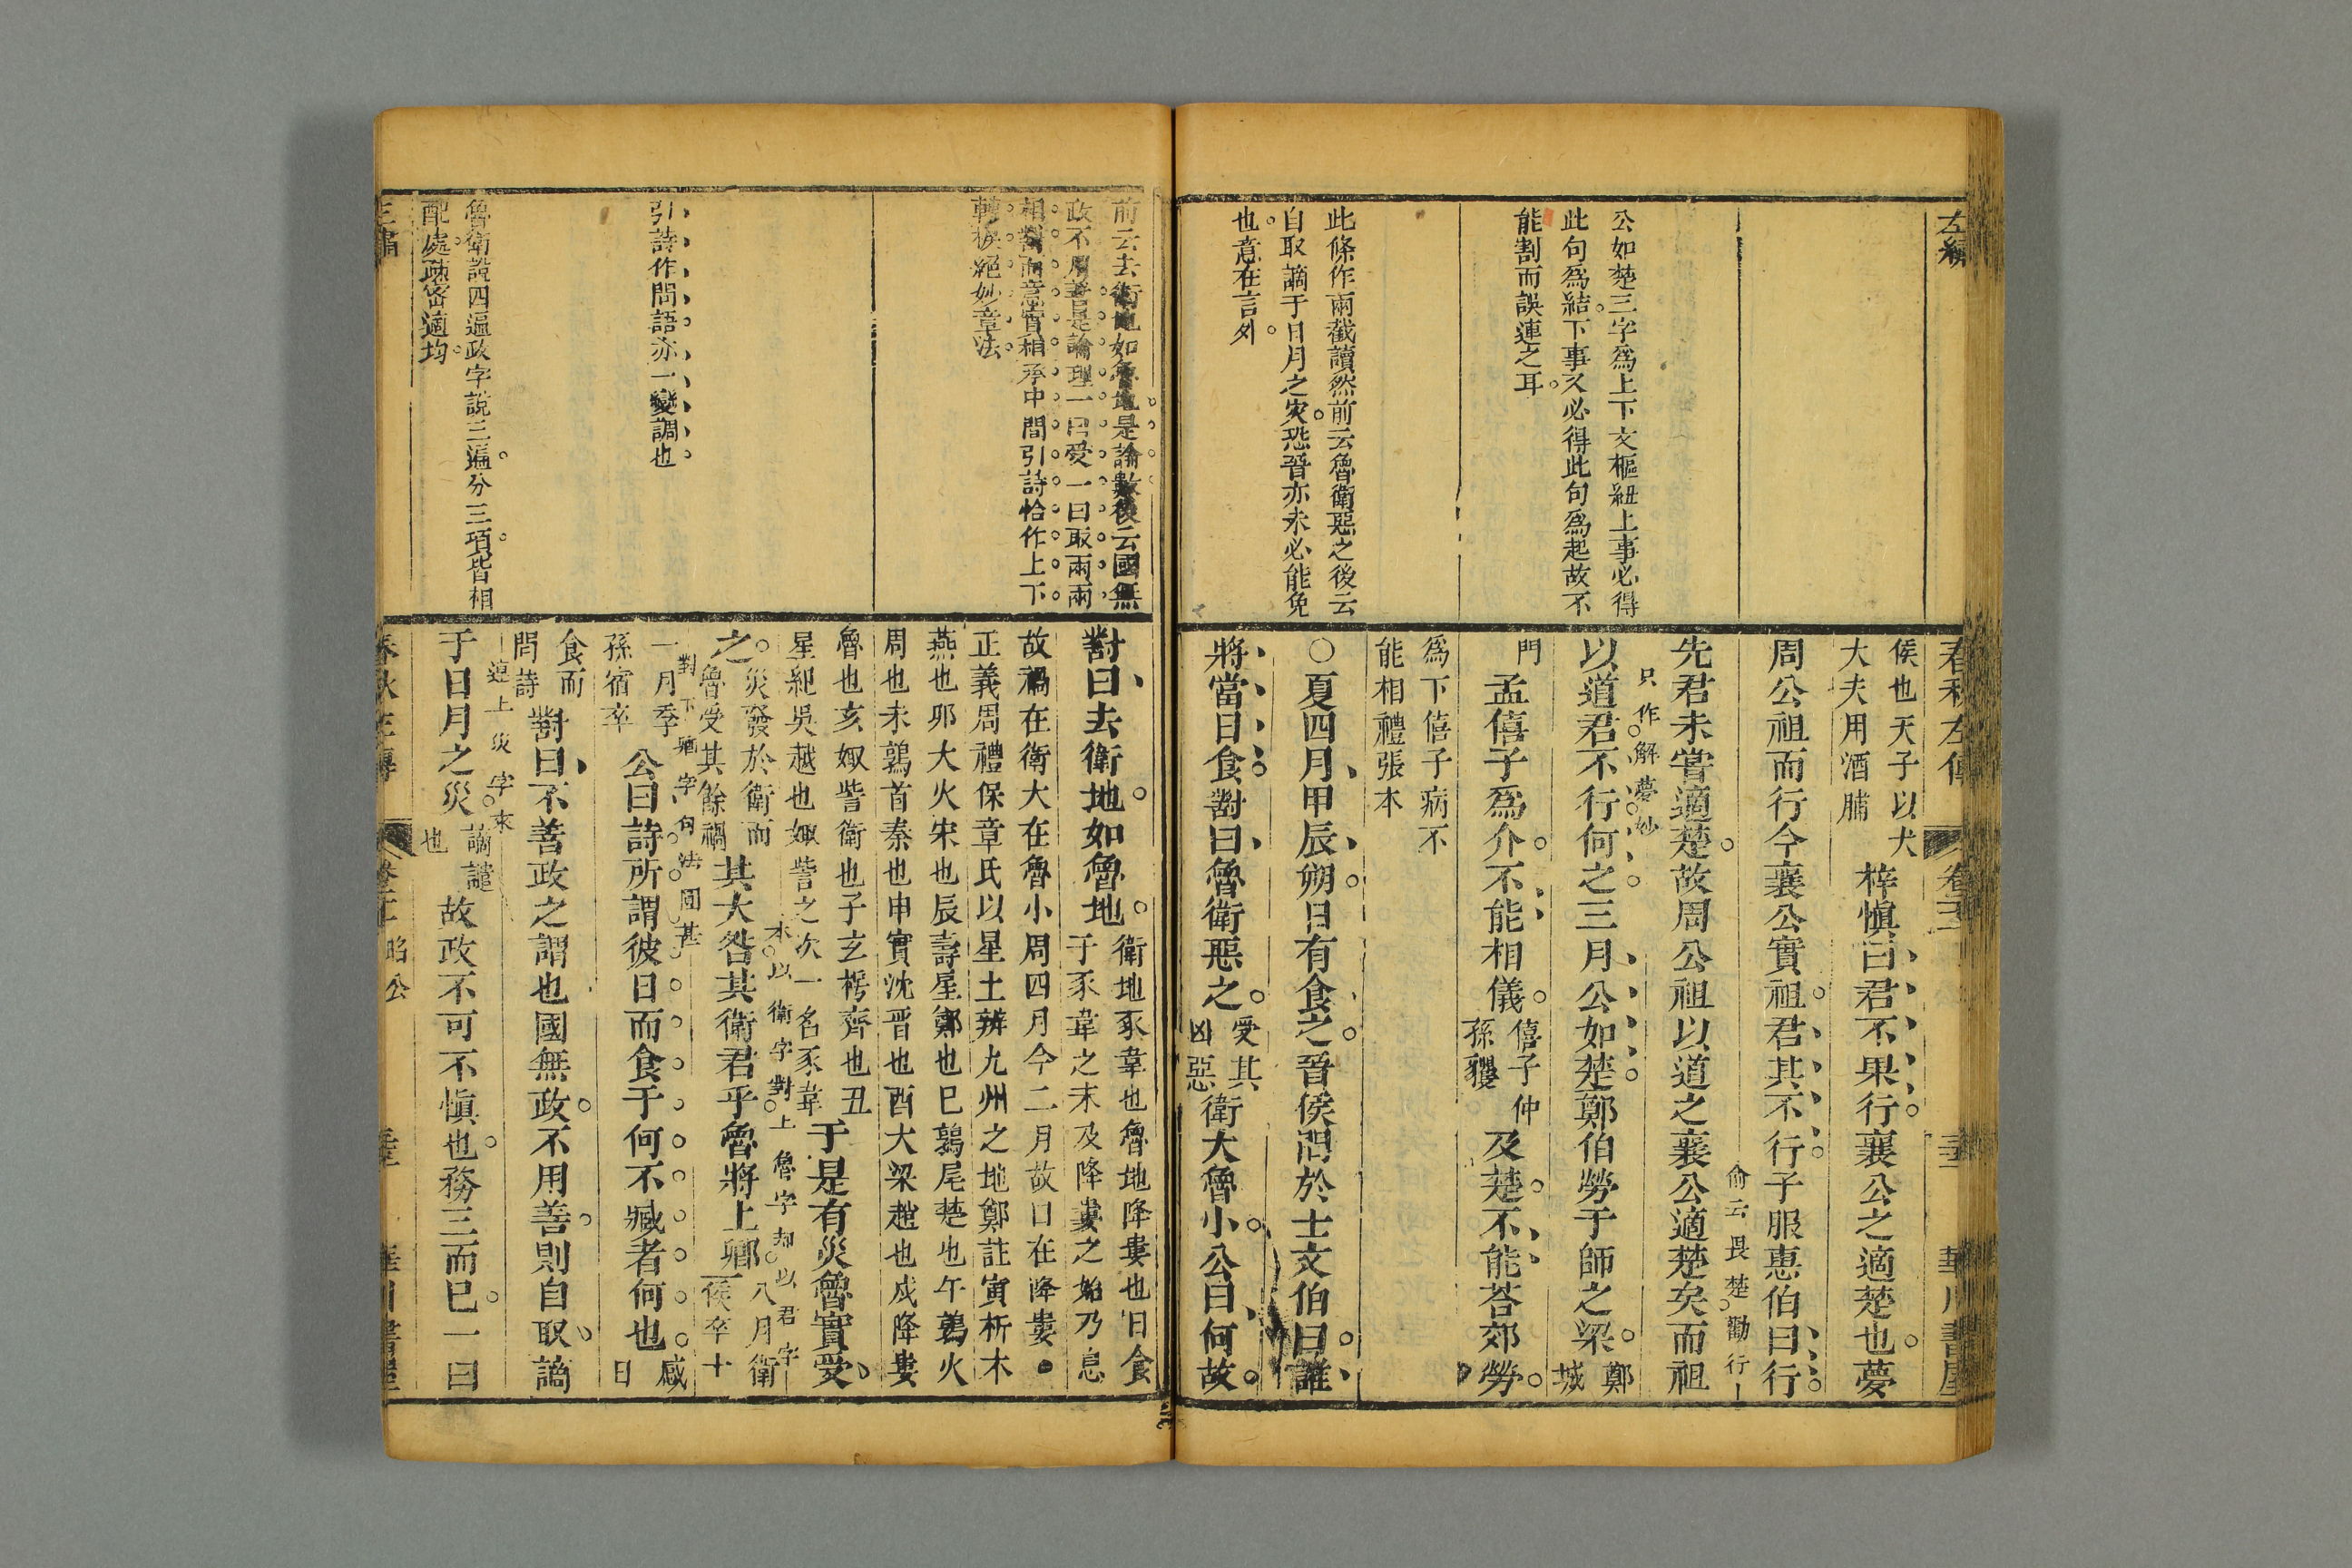 左繡
公如楚三字爲上下文樞紐上事必得
此句爲結下事又必得此句爲起故不
能割而誤連之耳
此條作兩截讀然前云魯衛惡之後云
自取謫于日月之災恐晉亦未必能免
也意在言外
春秋左傳
卷二
華川書屋
侯也天子以犬
大夫用酒脯
梓愼曰君不果行襄公之適楚也夢
周公祖而行今襄公實祖君其不行子服惠伯曰行
俞云畏楚勸行
先君未嘗適楚故周公祖以道之襄公適楚矣而祖
只作解夢妙
以道君不行何之三月公如楚鄭伯勞于師之梁
鄭
城
門
孟僖子爲介不能相儀
僖子仲
孫貜
及楚不能荅郊勞
爲下僖子病不
能相禮張本
○夏四月甲辰朔日有食之晉侯問於士文伯曰誰
將當日食對曰魯衛惡之
受其
凶惡
衛大魯小公曰何故
前云去衛地如魯地是論數後云國無
政不用善是論理一曰受一曰取兩兩
相對而意實相承中間引詩恰作上下
轉棙絕妙章法
引詩作問語亦一變調也
魯衛說四遍政字說三遍分三項皆相
配處疎密適均
對曰去衛地如魯地
衛地豕韋也魯地降婁也日食
于豕韋之末及降婁之始乃息
故禍在衛大在魯小周四月今二月故日在降婁●
正義周禮保章氏以星土辨九州之地鄭註寅析木
燕也卯大火宋也辰壽星鄭也巳鶉尾楚也午鶉火
周也未鶉首秦也申實沈晉也酉大梁趙也戍降婁
魯也亥娵訾衛也子玄枵齊也丑
星紀吳越也娵訾之次一名豕韋
于是有災魯實受
本以衛字對上魯字却以君字
對下卿字句法圓甚
之
災發於衛而
魯受其餘禍
其大咎其衛君乎魯將上卿
八月衛
侯卒十
一月季
孫宿卒
公曰詩所謂彼日而食于何不臧者何也
感
日
食而
問詩
對曰不善政之謂也國無政不用善則自取謫
遵上災字來
于日月之災
謫譴
也
故政不可不愼也務三而已一曰
左繡
春秋左傳
昭公